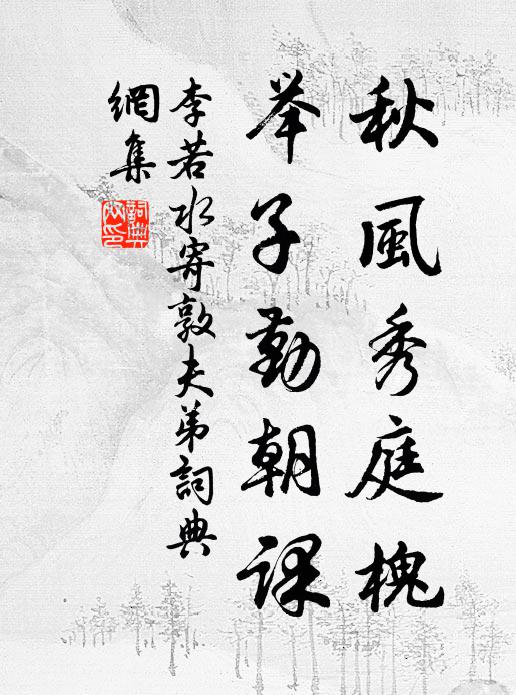 秋風秀庭槐
举子勤朝课
李若水寄敦夫弟詞典
網集
詞典網印